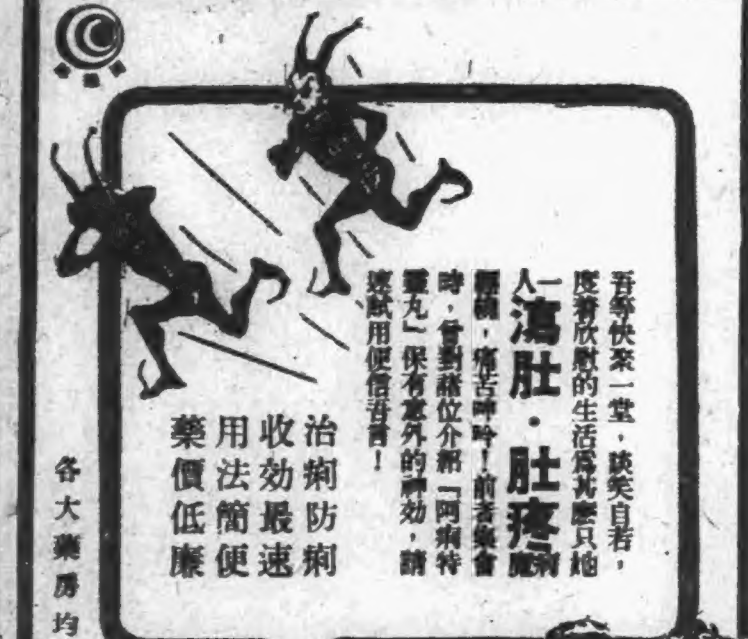 吾等快聚一堂,談笑自若,
度著欣慰的生活爲甚麽只她
一人瀉肚·肚疼病魔
纏繞,痛苦呻吟!前者集會
時,曾對諸位介紹「阿痢特
靈丸」保有意外的神効,請
速試用便信吾言!
治痢防痢
收効最速
用法簡便
藥價低廉
各大藥房均